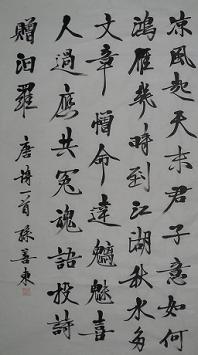 凉風起天末君子意如何
鴻雁幾時到江湖秋水多
文章憎命達魑魅喜
人過應共冤魂語投詩
贈汨羅 唐詩首